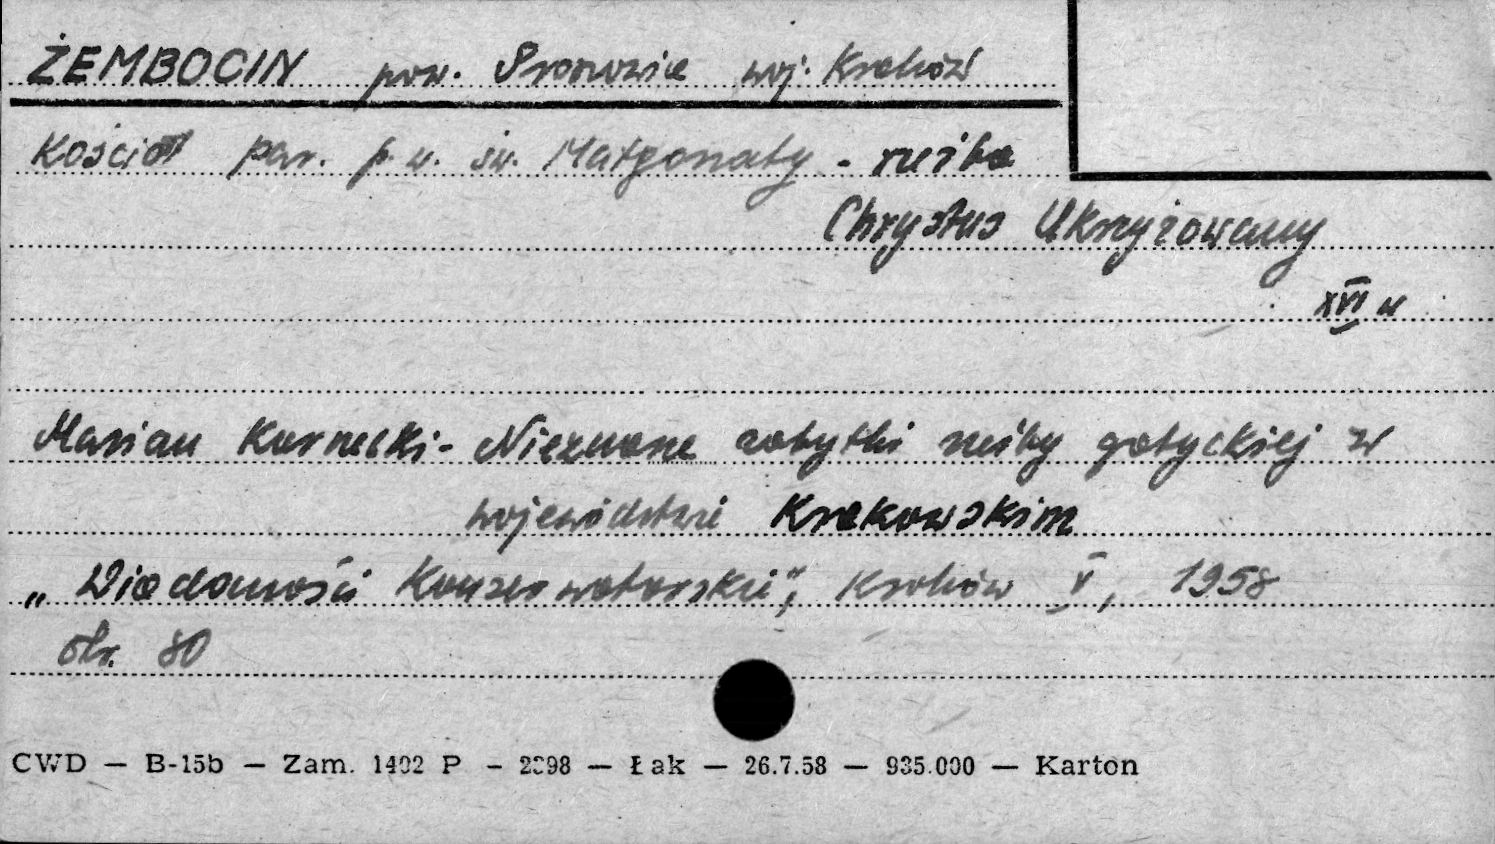 ŻEMBOCIN pow. Proszowice woj. Kraków
Kościół par. p.w. św. Małgorzaty - rzeźba
Chrystus Ukrzyżowany
XVI w
Marian Kornecki - Nieznane zabytki rzeźby gotyckiej w
województwie Krakowskim
„Wiadomości Konserwatorskie", Kraków V, 1958
str. 80
CWD — B-15b — Zam. 1402 P — 2398 — Łak — 26.7.58 — 935.000 — Karton